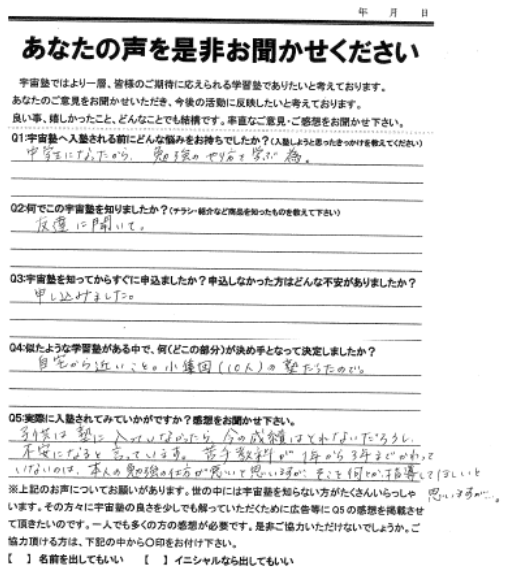 年　月　日
あなたの声を是非お聞かせください
宇宙塾ではより一層、皆様のご期待に応えられる学習塾でありたいと考えております。
あなたのご意見をお聞かせいただき、今後の活動に反映したいと考えております。
良い事、嬉しかったこと、どんなことでも結構です。率直なご意見・ご感想をお聞かせ下さい。
Q1:宇宙塾へ入塾される前にどんな悩みをお持ちでしたか？(入塾しようと思ったきっかけを教えてください)
中学生になったから、勉強のやり方を学ぶ為。
Q2:何でこの宇宙塾を知りましたか？(チラシ・紹介など商品を知ったものを教えて下さい)
友達に聞いて。
Q3:宇宙塾を知ってからすぐに申込ましたか？申込しなかった方はどんな不安がありましたか？
申し込みました。
Q4:似たような学習塾がある中で、何(どこの部分)が決め手となって決定しましたか？
自宅から近いこと。小集団(10人)の塾だったので。
Q5:実際に入塾されてみていかがですか？感想をお聞かせ下さい。
子供は塾に入っていなかったら、今の成績はとれないだろうし、
不安になると言っています。苦手教科が1年から3年までかわって
いないのは、本人の勉強の仕方が悪いと思いますが、そこを何とか指導してほしいと
思いますが…。
※上記のお声についてお願いがあります。世の中には宇宙塾を知らない方がたくさんいらっしゃ
います。その方々に宇宙塾の良さを少しでも解っていただくために広告等にQ5の感想を掲載させ
て頂きたいのです。一人でも多くの方の感想が必要です。是非ご協力いただけないでしょうか。ご
協力頂ける方は、下記の中から〇印をお付け下さい。
【　】名前を出してもいい　【　】イニシャルなら出してもいい